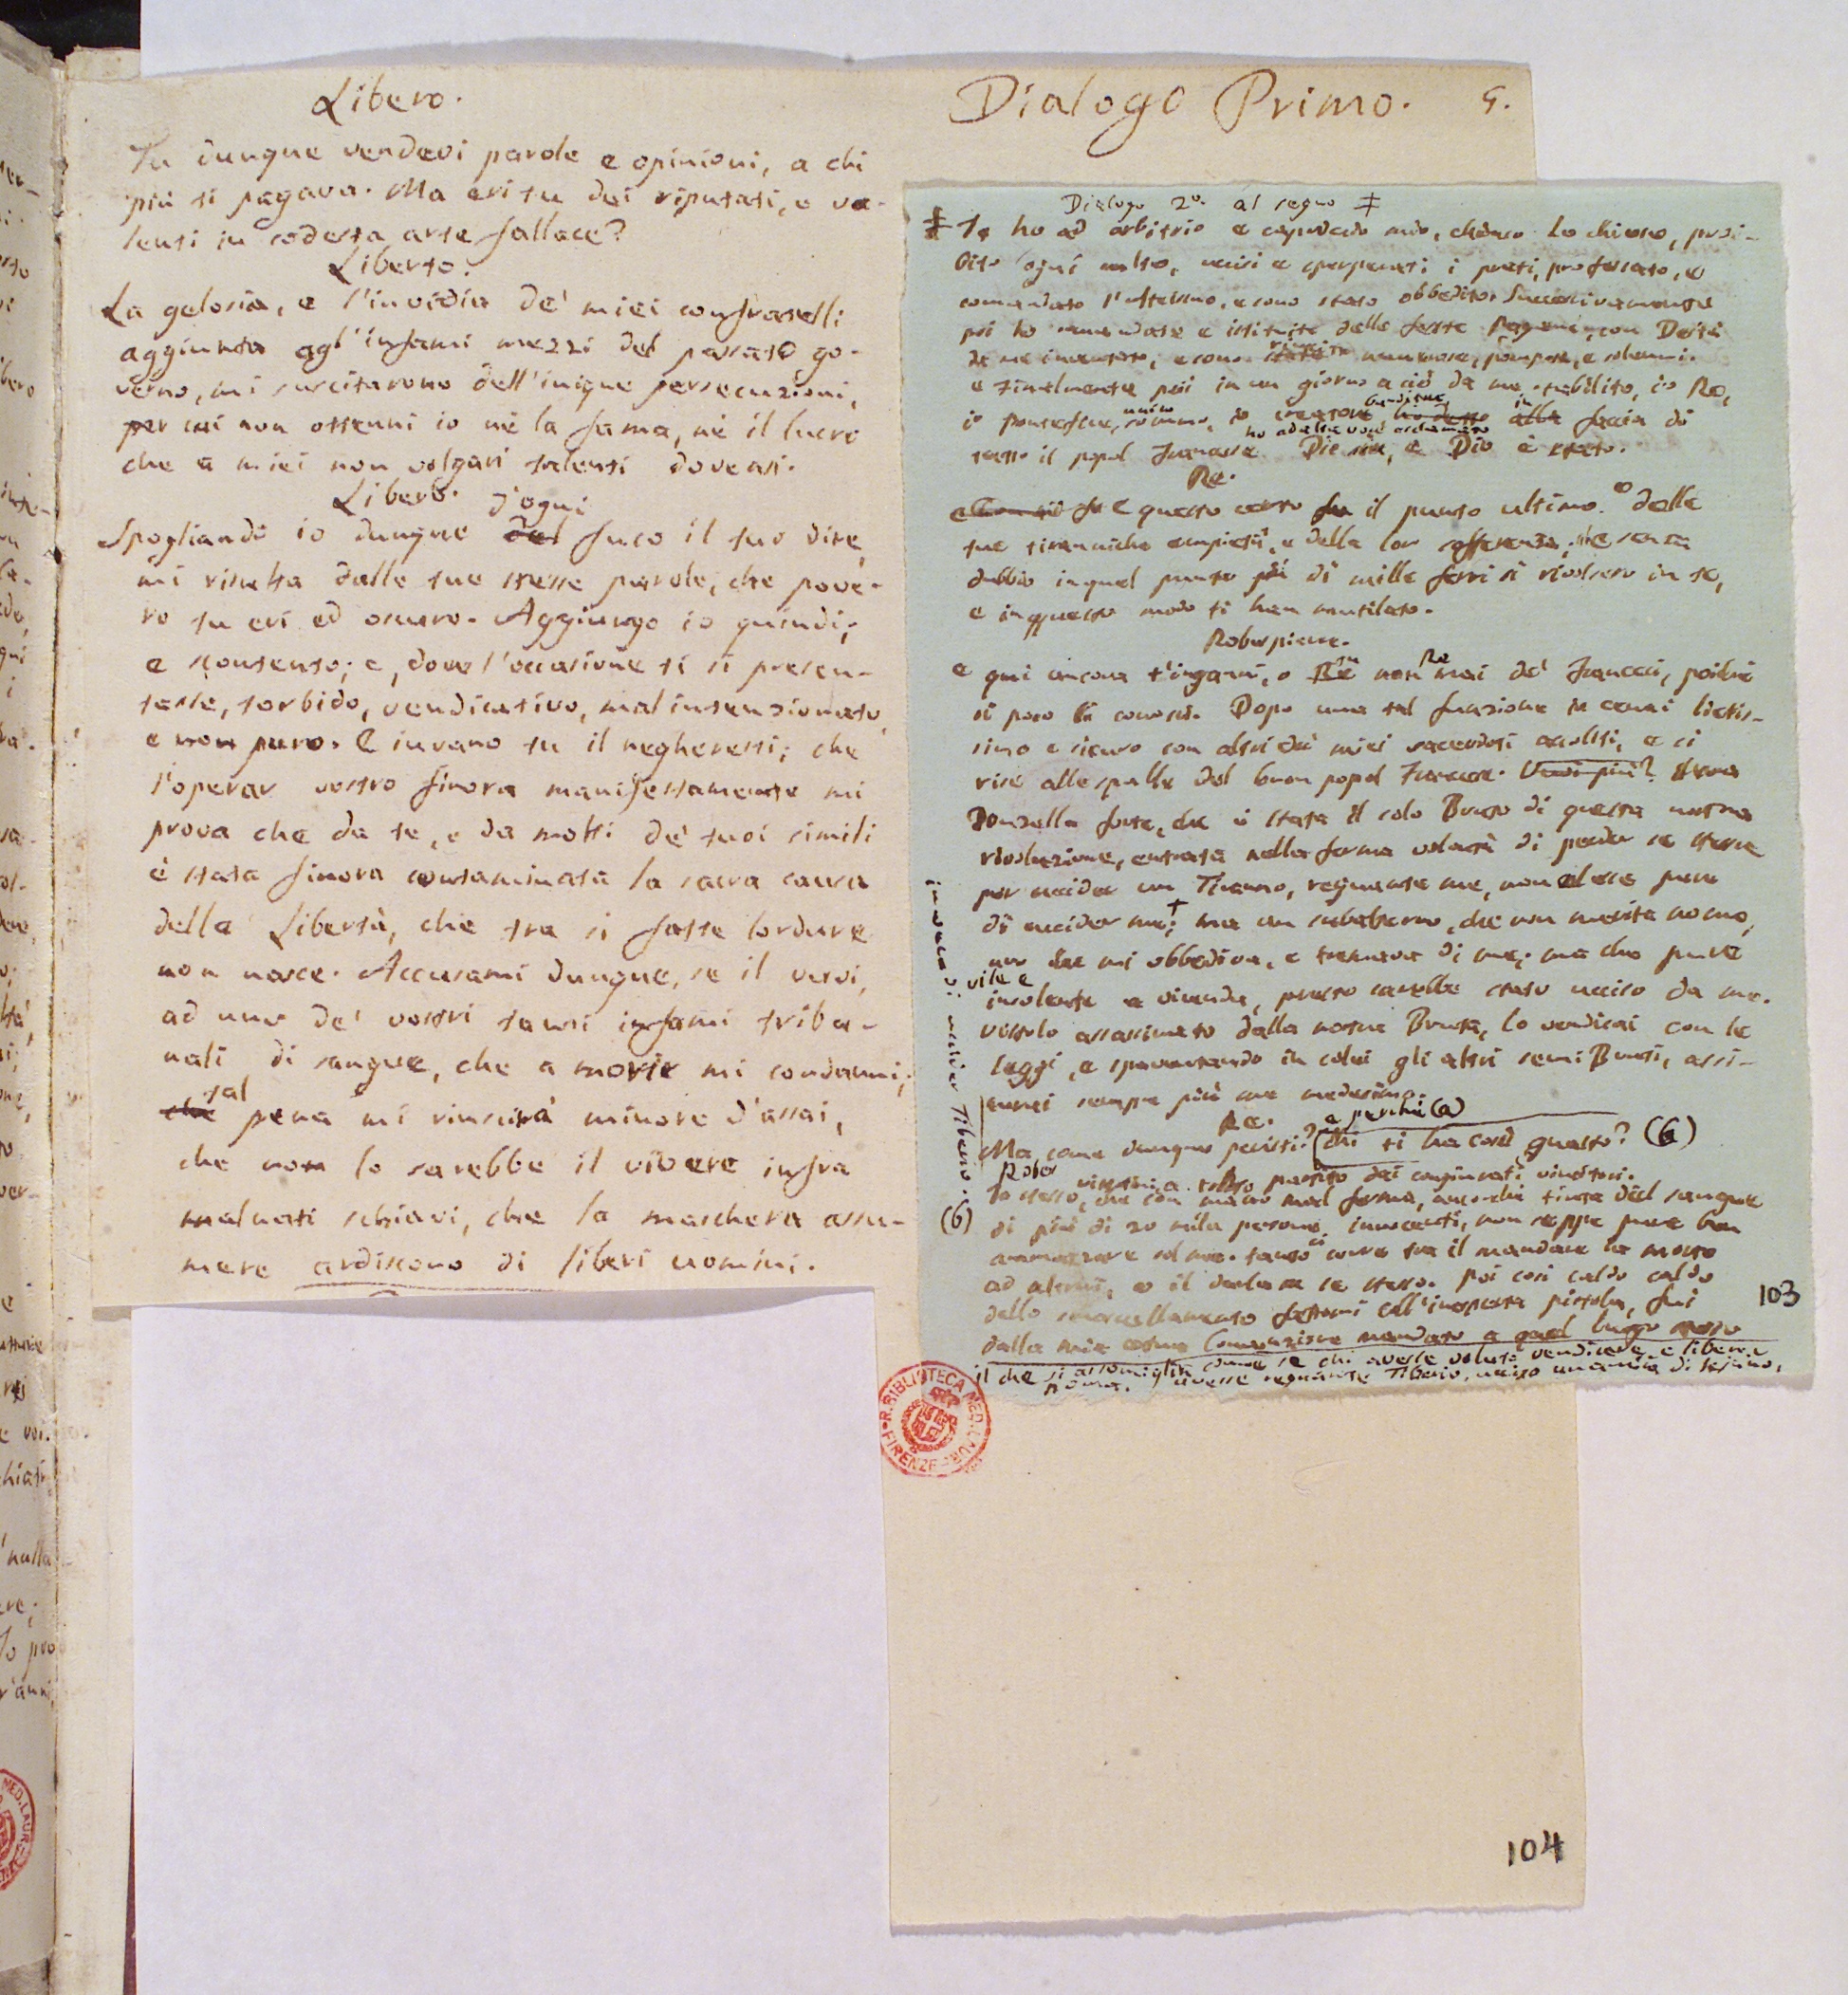 Libero.
Tu dunque vendevi parole e opinioni, a chi
più ti pagava. Ma eri tu dei riputati, e va-
lenti in codesta arte fallace?
Liberto.
La gelosia, e l'invidia de' miei confratelli
aggiunta agl'infami mezzi del passato go-
verno, mi suscitarono dell'inique persecuzioni,
per cui non ottenni io nè la fama, nè il lucro
che a miei non volgari talenti doveasi.
Libero.
d'ogni
Spogliando io dunque del fuco il tuo dire,
mi risulta dalle tue stesse parole, che pove-
ro tu eri ed oscuro. Aggiungo io quindi;
e scontento; e, dove l'occasione ti si presen-
tasse, torbido, vendicativo, mal intenzionato,
e non puro. E invano tu il negheresti; che
l'operar vostro finora manifestamente mi
prova che da te, e da molti de' tuoi simili
è stata finora contaminata la sacra causa
della Libertà, che tra sì fatte lordure
non nasce. Accusami dunque, se il vuoi,
ad uno de' vostri tanti infami tribu-
nali di sangue, che a morir mi condanni;
tal
che pena mi riuscirà minore d'assai,
che non lo sarebbe il vivere infra
malnati schiavi, che la maschera assu-
mere ardiscono di liberi uomini.
Dialogo Primo. 9.
Dialogo 2º. al segno ‡
‡ Io ho ad arbitrio e capriccio mio, chiuso le chiese, proi-
bito ogni culto, uccisi e sperperati i preti, professato, e
comandato l'ateismo, e sono stato obbedito. Successivamente
poi ho comandate e istituite delle feste Pagane, con Deità
da me inventate; e sono state numerose, pompose, e solenni.
e finalmente poi in un giorno a ciò da me stabilito, io Re,
unico
io pontefice, sommo, io creatore ho detto alla faccia di
in
ho ad alta voce esclamato
tutto il popol Francese Dio sia, e Dio è stato.
Re.
E questo certo fu il punto ultimo delle
tue tiranniche empietà, e della lor sofferenza; che senza
dubbio in quel punto più di mille ferri si rivolsero in te,
e in questo modo ti han mutilato.
Roberspierre.
e qui ancora t'inganni, o Re non mai de' Francesi, poichè
tu
Re
sì poco li conosci. Dopo una tal funzione io cenai lietis-
simo e sicuro con altri dei miei sacerdoti accoliti, e ci
rise alle spalle del buon popol Francese. Vuoi più? Una
Donzella forte, che è stata il solo Bruto di questa nostra
rivoluzione, entrata nella ferma volontà di perder se stessa
per uccider un Tiranno, regnante me, non elesse pure
di uccider me; ma un subalterno, che non merita nome,
uno che mi obbediva, e tremava di me; ma che pure
vile e
insolente a vicenda, presto sarebbe stato ucciso da me.
Vistolo assassinato dalla nostra Bruta, lo vendicai con le
leggi, e spaventando in colei gli altri semi Bruti, assi-
curai sempre più me medesimo.
Re.
e perchè (a)
Ma come dunque peristi? chi ti ha così guasto? (b)
Rober
vistomi a tolto partito dai congiurati vincitori.
(b)
Io stesso, che con mano mal ferma, ancorchè tinta del sangue
di più di 20 mila persone innocenti, non seppe pure ben
ammazzare sol me. tanto ci corre tra il mandare la morte
ad altrui, e il darla a se stesso. Poi così caldo caldo
dello smascellamento fattomi coll'inesperta pistola, fui
dalla mia stessa Convenzione mandato a quel luogo stesso
il che si assomiglia come se chi avesse voluto vendicare e liberar
Roma, avesse regnante Tiberio, ucciso una ancella di Sejano,
invece di uccider Tiberio.
103
R. BIBLIOTECA MED. LAUR.
FIRENZE
104